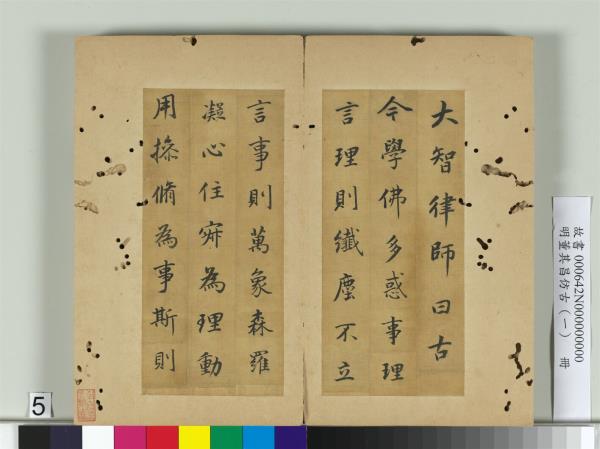 大智律師曰古
今學佛多惑事理
言理則纖塵不立
言事則萬象森羅
凝心住寂為理動
用操脩為事斯則
故書 000642N000000000
明董其昌仿古（一） 冊
5